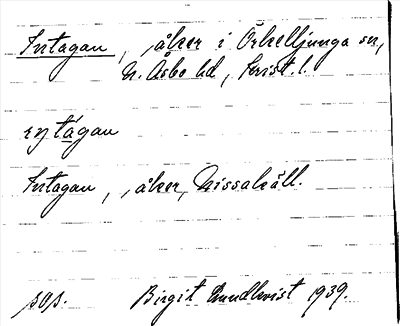 Intagan, åker i Örkelljunga sn,
N. Åsbo hd, Krist. l.
Intagan, åker, Nissakäll.
Birgit Lundkvist 1939.